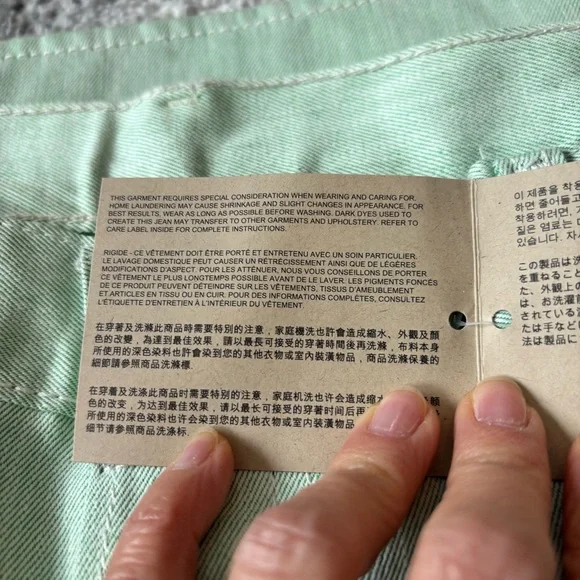 THIS GARMENT REQUIRES SPECIAL CONSIDERATION WHEN WEARING AND CARING FOR.
HOME LAUNDERING MAY CAUSE SHRINKAGE AND SLIGHT CHANGES IN APPEARANCE. FOR
BEST RESULTS, WEAR AS LONG AS POSSIBLE BEFORE WASHING. DARK DYES USED TO
CREATE THIS JEAN MAY TRANSFER TO OTHER GARMENTS AND UPHOLSTERY. REFER TO
CARE LABEL INSIDE FOR COMPLETE INSTRUCTIONS.
RIGIDE - CE VÊTEMENT DOIT ÊTRE PORTÉ ET ENTRETENU AVEC UN SOIN PARTICULIER.
LE LAVAGE DOMESTIQUE PEUT CAUSER UN RÉTRECISSEMENT AINSI QUE DE LÉGÈRES
MODIFICATIONS D'ASPECT. POUR LES ATTÉNUER, NOUS VOUS CONSEILLONS DE PORTER
CE VÊTEMENT LE PLUS LONGTEMPS POSSIBLE AVANT DE LE LAVER. LES PIGMENTS FONCÉS
DE CE PRODUIT PEUVENT DÉTEINDRE SUR LES VÊTEMENTS, TISSUS D'AMEUBLEMENT
ET ARTICLES EN TISSU OU EN CUIR. POUR DES INFORMATIONS COMPLÈTES, CONSULTEZ
L'ÉTIQUETTE D'ENTRETIEN À L'INTÉRIEUR DU VÊTEMENT.
在穿著及洗滌此商品時需要特別的注意，家庭機洗也許會造成縮水、外觀及顏
色的改變，為達到最佳效果，請以最長可接受的穿著時間後再洗滌，布料本身
所使用的深色染料也許會染到您的其他衣物或室內裝潢物品，商品洗滌保養的
細節請參照商品洗滌標.
在穿着及洗涤此商品时需要特别的注意，家庭机洗也许会造成缩水
色的改变，为达到最佳效果，请以最长可接受的穿著时间后再
所使用的深色染料也许会染到您的其他衣物或室内装潢物品，
细节请参照商品洗涤标.
이 제품을 착용
하면 줄어들고
착용하려면,
질은 염료는
있습니다. 자
この製品は洗
を重ねること
た、外観上の
は、お洗濯
されている
たは手などに
法は製品に